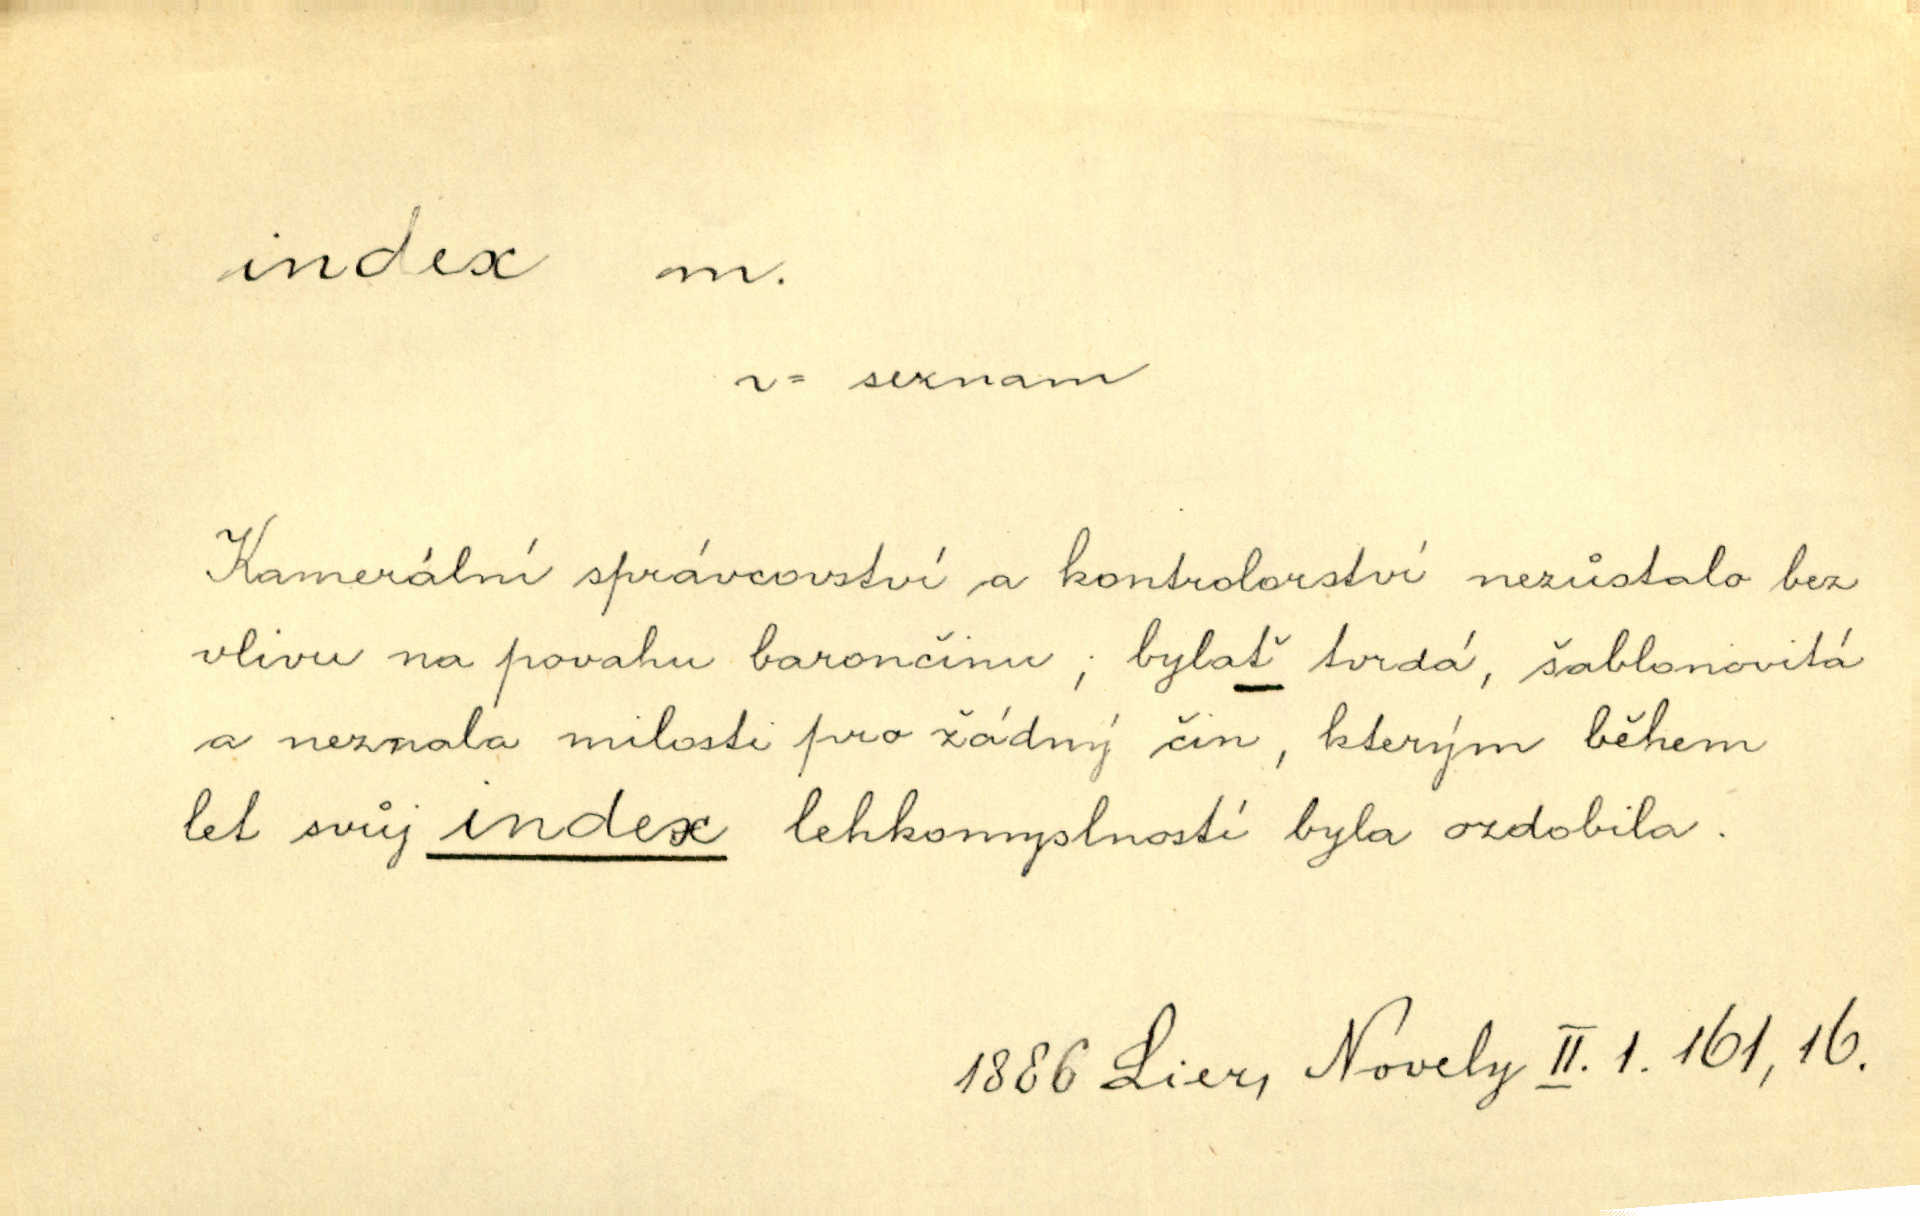 index m.
v= seznam
Kamerální správcovství a kontrolorství nezůstalo bez
vlivu na povahu barončinu; bylať tvrdá, šablonovitá
a neznala milosti pro žádný čin, kterým během
let svůj index lehkomyslností byla ozdobila.
1886 Lier, Novely II. 1. 161, 16.